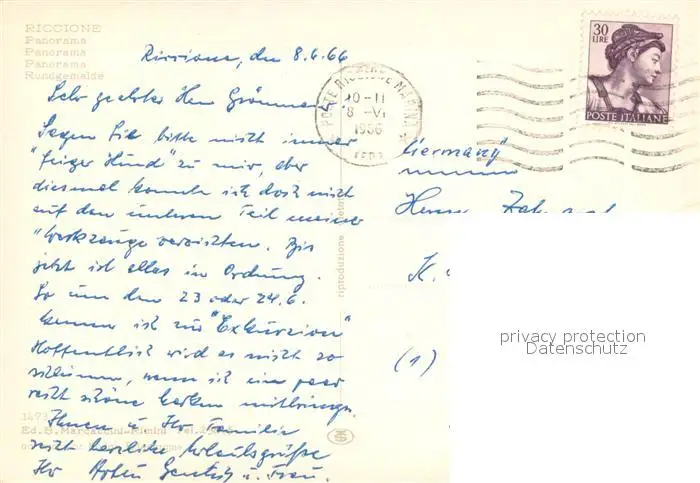 RICCIONE
Panorama
Panorama
Panorama
Rundgemälde
Riccione, den 8.6.66
Sehr geehrter Herr
Sagen Sie bitte nicht immer
"feiger Hund" zu mir, aber
diesmal konnte ich doch nicht
auf den unteren Teil meiner
"Werkzeuge verzichten. Bis
jetzt ist alles in Ordnung.
So um den 23 oder 24.6.
komme ich zur "Exkursion"
Hoffentlich wird es nicht so
schlimm, wenn ich ein paar
recht schöne Karten mitbringe.
Ihnen u. Ihr Familie
recht herzliche Urlaubsgrüße
Ihr u. Frau.
Ed. B. Marcaccini-Rimini
riproduzione
POSTE RICCIONE MARINA
10-11
8 VI
1966
30
LIRE
POSTE ITALIANE
Germany
Herrn
K.
(1)
privacy protection
Datenschutz